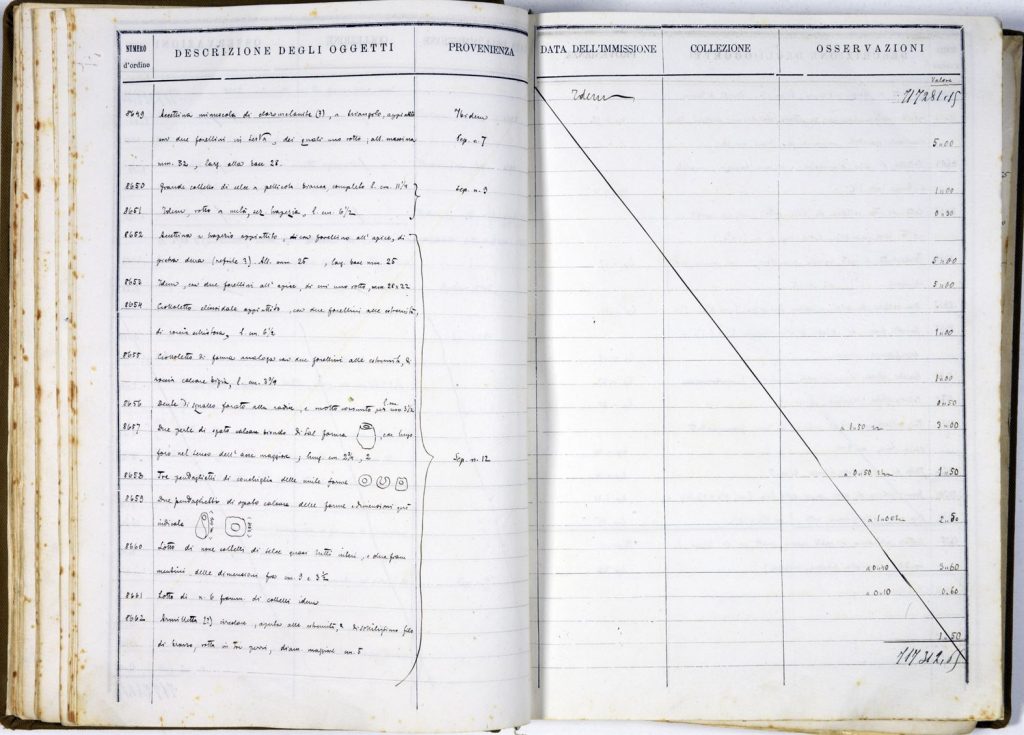 NUMERO d'ordine
DESCRIZIONE DEGLI OGGETTI
PROVENIENZA
DATA DELL'IMMISSIONE
COLLEZIONE
OSSERVAZIONI
Valore
Idem
717281.15
8649 Accettina minuscola di cloromelanite (?), a triangolo, appiattito Ibidem
con due forellini in testa, dei quali uno rotto; alt. massima Sep. n. 7
5.00
mm. 32, larg. alla base 28.
8650 Grande coltello di selce a pellicola bianca, completo l. cm. 11 1/4 Sep. n. 9
1.00
8651 Idem, rotto a metà, sez. trapezia, l. cm. 6 1/2
0.30
8652 Accettina a trapezio appiattito, con forellino all'apice, di
pietra dura (nefrite?). Alt. mm. 25, larg. base mm. 25
5.00
8653 Idem, con due forellini all'apice, di cui uno rotto, mm 28x22
5.00
8654 Ciottoletto elissoidale appiattito, con due forellini alle estremità,
di roccia schistosa, l. cm. 6 1/2
1.00
8655 Ciottoletto di forma analoga con due forellini alle estremità, di
roccia calcare bigia, l. cm. 3 3/4
1.00
8656 Dente di squallo forato alla radice, e molto consunto,
0.50
8657 Due perle di spato calcare di tal forma, con lungo
3.00
foro nel senso dell'asse maggiore; lung. cm. 2 3/4, 2
Sep. n. 12
8658 Tre pendaglietti di conchiglia delle unite forme
a 0.50
1.50
8659 Due pendaglietti di spato calcare delle forme e dimensioni qui
indicate
a 1.00
2.50
8660 Lotto di nove coltelli di selce quasi tutti interi, e due fram
mentini, delle dimensioni fra cm. 9 e 3 1/2
a 0.40
3.60
8661 Lotto di n. 6 framm. di coltelli idem
a 0.10
0.60
8662 Armilletta (?) circolare, aperta alle estremità, di sottilissimo filo
di bronzo, rotta in tre pezzi, diam. maggiore cm. 5
1.50
717312.15